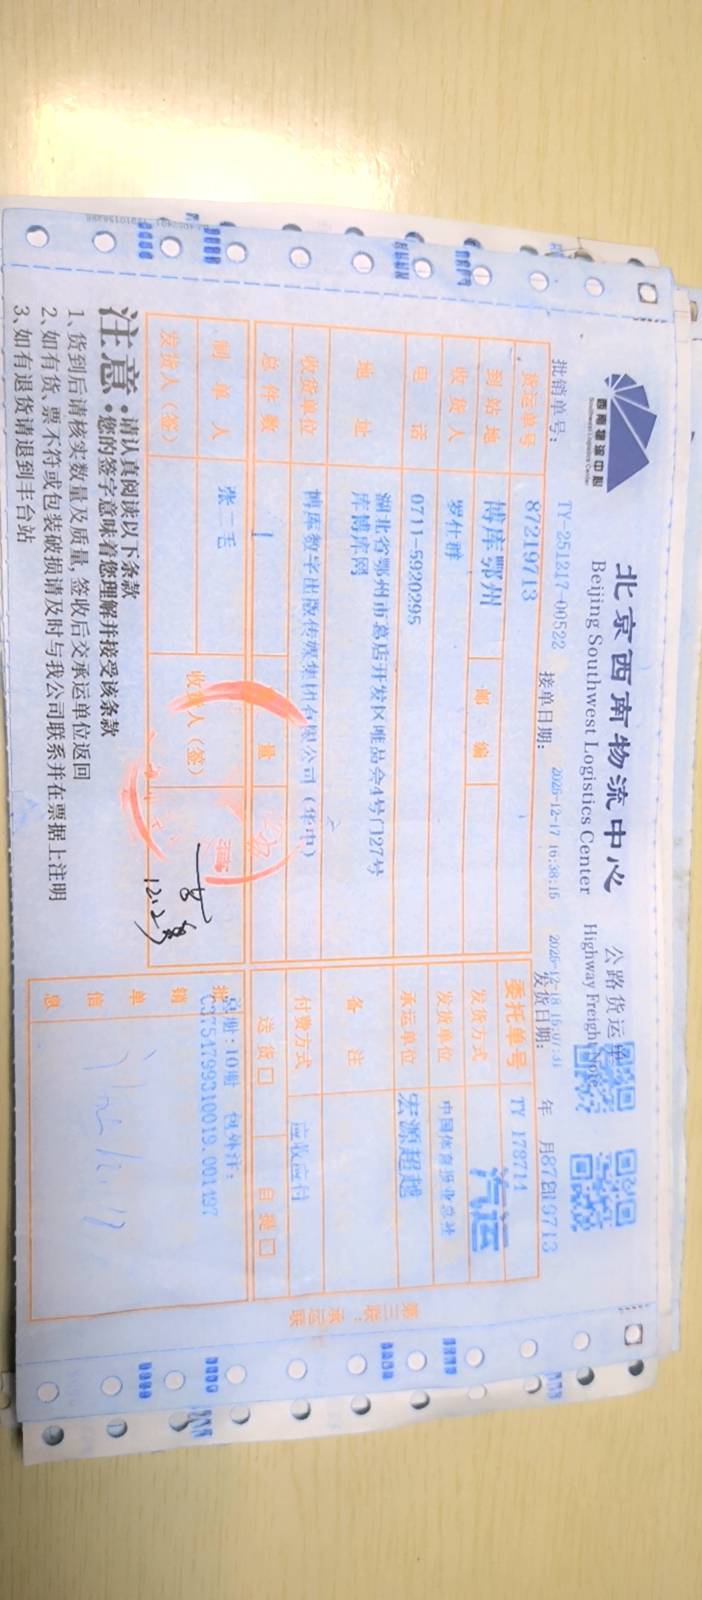 西南物流中心
Southwest Logistics Center
北京西南物流中心 公路货运单
Beijing Southwest Logistics Center Highway Freight Note
批销单号: TY-251217-00522 接单日期: 2025-12-17 16:38:15 发货日期: 2025-12-18 15:07:31 年 月
87219713
货运单号 87219713 委托单号 TY 178714
到站地 博库鄂州 邮编 发货方式 汽运
收货人 罗仕群 发货单位 中国体育报业总社
电话 0711-5920295 承运单位 宏源超越
地址 湖北省鄂州市葛店开发区唯品会4号门27号
库博库网
备注
收货单位 博库数字出版传媒集团有限公司(华中) 付费方式 应收应付
总件数 1 量 送货□ 自提□
制单人 张二毛 收货人(签)
发货人(签)
12.2
批销单信息 总册:10册 包外注:
C3751799310019.001497
第三联:承运联
注意·请认真阅读以下条款
·您的签字意味着您理解并接受该条款
1、货到后请核实数量及质量,签收后交承运单位返回
2、如有货、票不符或包装破损请及时与我公司联系并在票据上注明
3、如有退货请退到丰台站